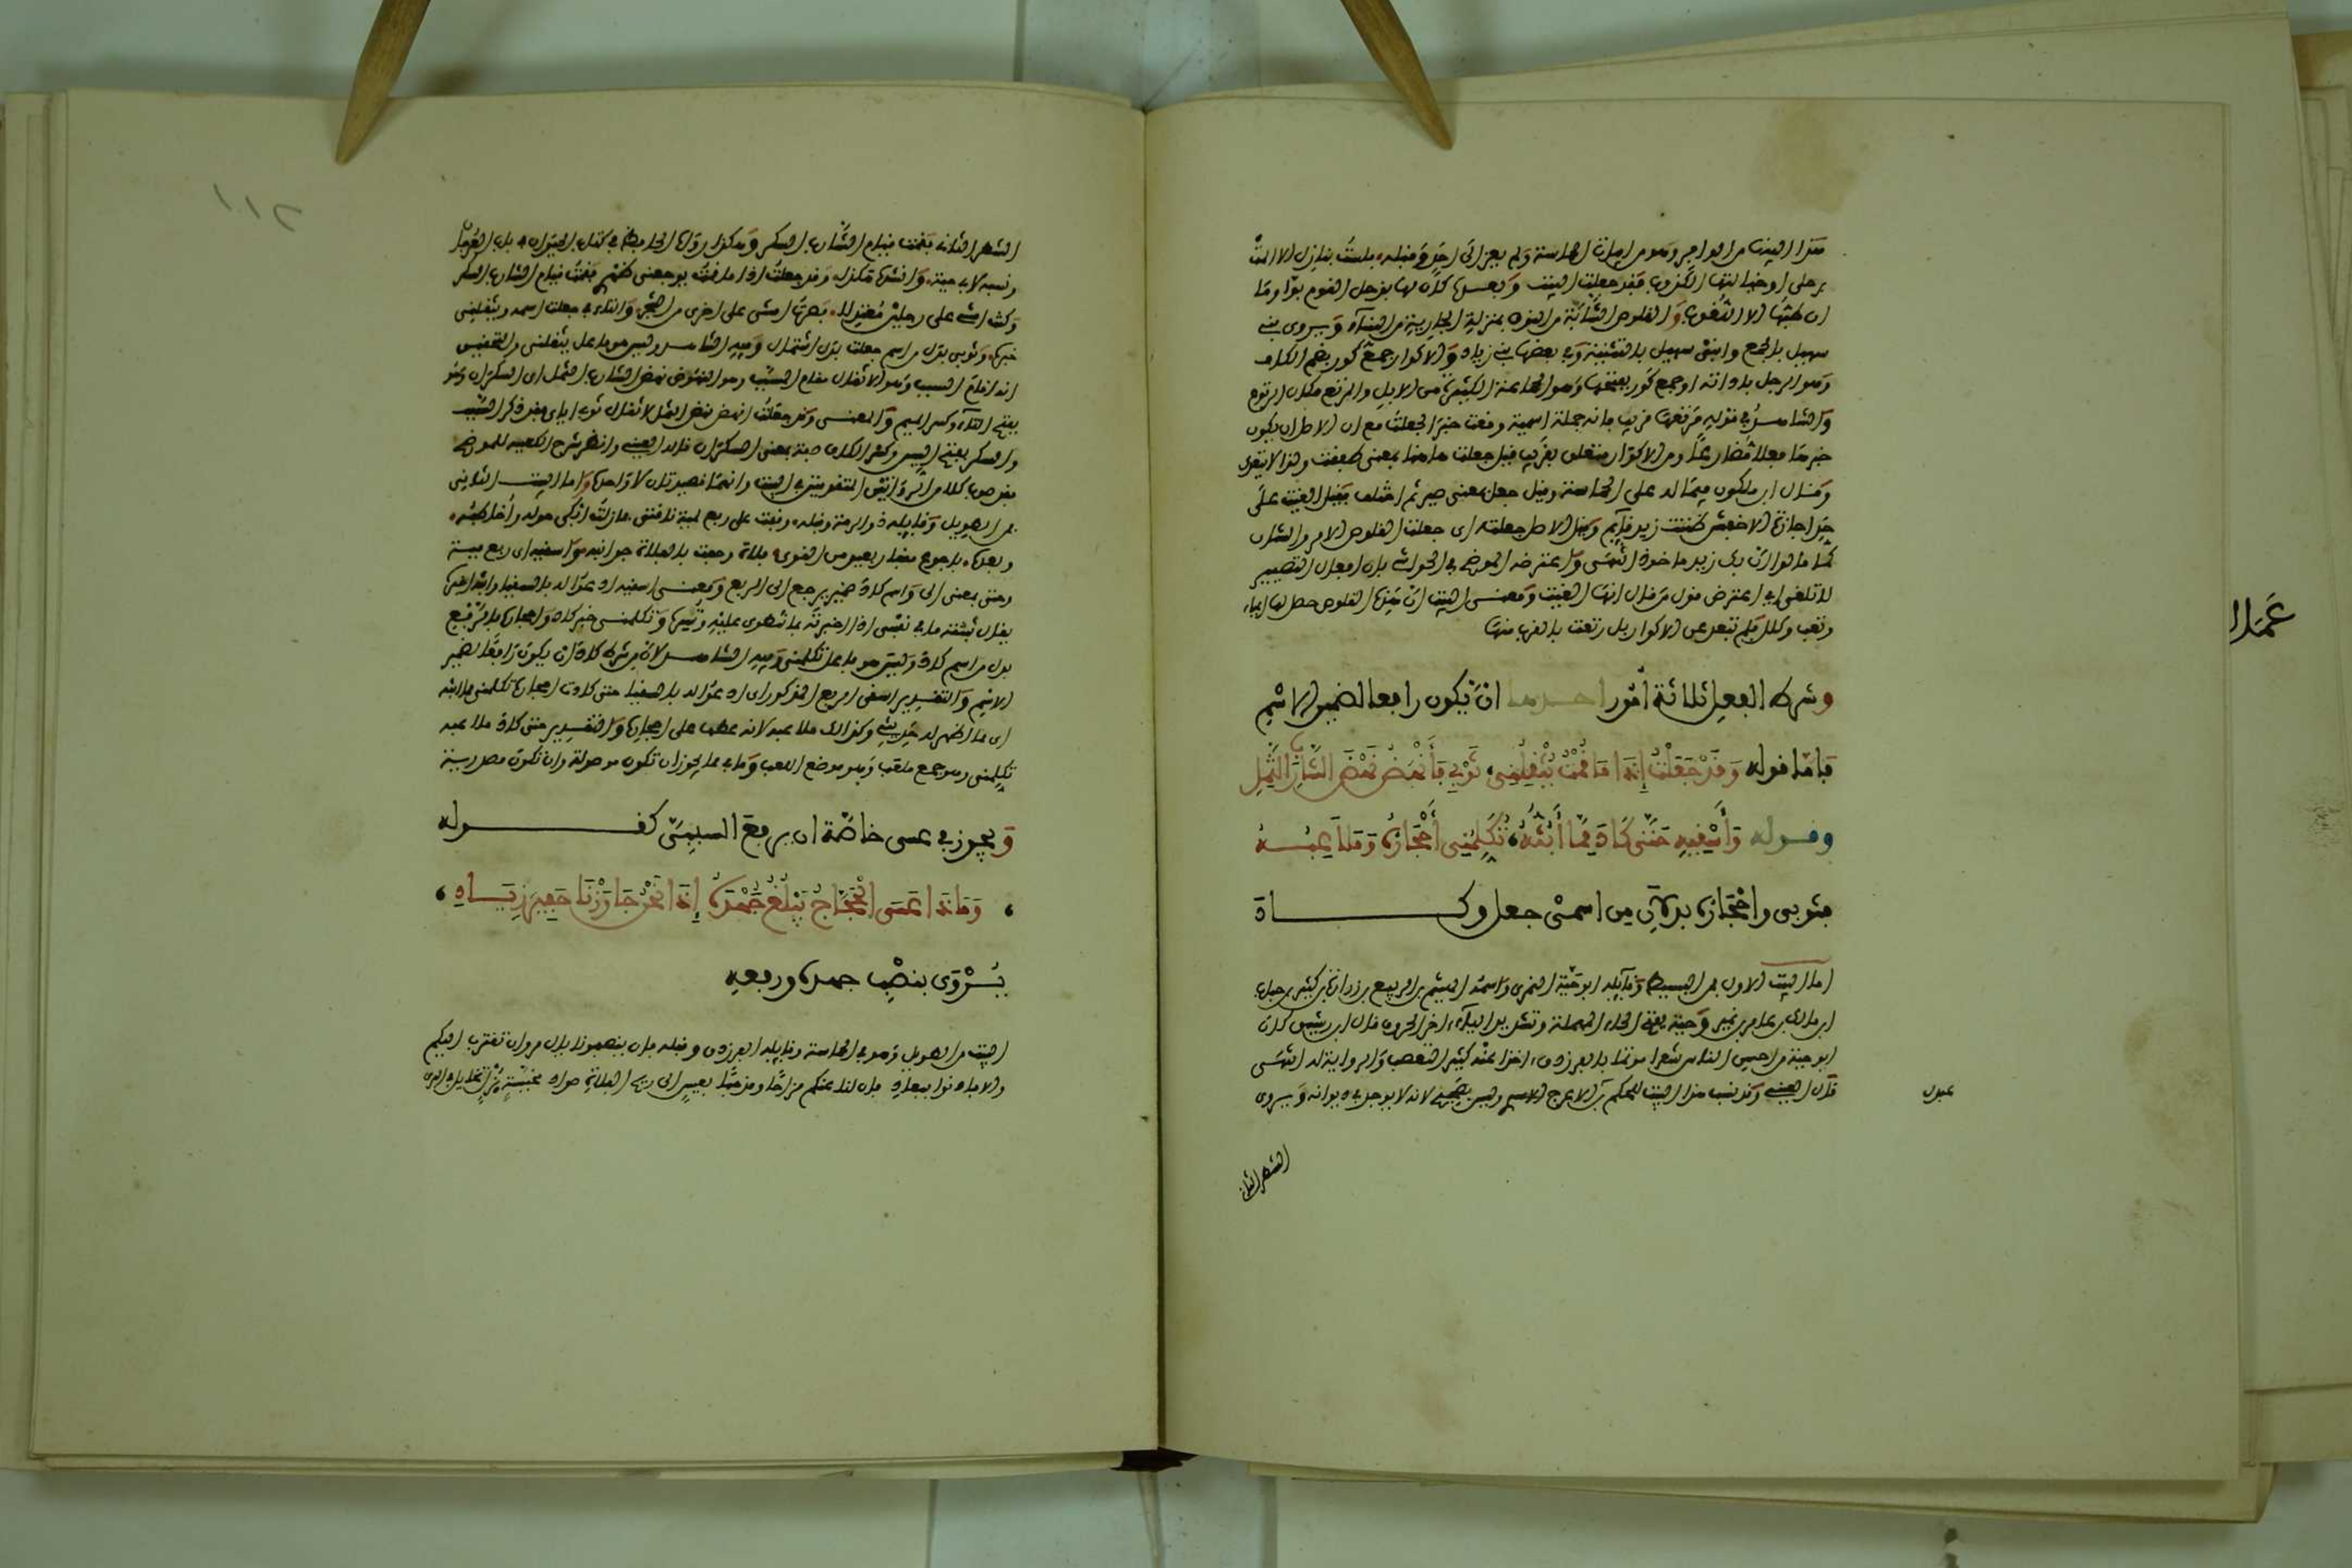 هذا البيت من الوافر وهو من ابيات الحماسة ولم يعز الى احد وقبله فلست بنازل الا المت
برحلي او خيالتها الكذوب فقد جعلت البيت وبعده كان لها برحل القوم بوا وما
ان طبها الا اللغوب والقلوص الشابة من النوق بمنزلة الجارية من النساء ويروى بني
سهيل بالجمع وابنى سهيل بالتثنية وفي بعضها بني زياد والاكوار جمع كور بضم الكاف
وهو الرحل باداته او جمع كور بفتحها وهو الجماعة الكثيرة من الابل والمرتع مكان الرتوع
والشاهد في قوله مرتعها قريب فانه جملة اسمية وقعت خبرا لجعلت مع ان الاصل ان يكون
خبرها فعلا مضارعا ومن الاكوار متعلق بقريب قيل جعلت هاهنا بمعنى طفقت ولذا لا يتعدى
وقال ابن ملكون فيما له على الحماسة وقيل جعل بمعنى صير ثم اختلف فقيل الغيت على
حد اجازة الاخفش ظننت زيد قائم وقيل الاصل جعلته اي جعلت القلوص الامر والشان
كما قالوا ان بك زيد ماخوذ الشمني واعترضه الموضح في الحواشي بان افعال التصيير
لا تلغى اي اعترض قول من قال انها الغيت ومعنى البيت ان القلوص حصل لها اعياء
وتعب وكلال فلم تبعد عن الاكوار بل رتعت بالقرب منها
وشرط الفعل ثلاثة أمور احدها ان يكون رافعا لضمير الاسم
فأما قوله وَقَدْ جَعَلْتُ إِذَا مَا قُمْتُ يُثْقِلُنِي ثَوْبِي فَأَنْهَضُ نَهْضَ الشَّارِبِ الثَّمِلِ
وقوله وَأَسْقِيهِ حَتَّى كَادَ مِمَّا أَبُثُّهُ تُكَلِّمُنِي أَحْجَارُهُ وَمَلَاعِبُهُ
فثوبي وأحجاره بدلان من اسمي جعل وكاد
اما البيت الاول فمن البسيط وقائله ابو حية النمري واسمه الهيثم بن الربيع بن زرارة بن كثير بن جناب
ابن مالك بن عامر بن نمير وحية بفتح الحاء المهملة وتشديد الياء اخر الحروف قال ابن رشيق كان
ابو حية من احسن الناس شعرا مؤتما بالفرزدق اخذا عنه كثير التعصب والرواية له الشمني
قال العيني وقد نسب هذا البيت للحكم بن الاعرج الاسدي وليس بصحيح لانه لا يوجد في ديوانه ويروى
عبدل
الشطر الثاني
٢١١
الشطر الثاني فقمت قيام الشارب السكر وهكذا رواه الجاحظ في كتاب الحيوان في باب العرجان
ونسبه لابي حية وانشد هكذا وقد جعلت اذا ما قمت يوجعني ظهري فقمت قيام الشارب السكر
وكنت امشي على رجلين معتدلا فصرت امشي على اخرى من الشجر والتاء في جعلت اسمه ويثقلني
خبره وثوبي بدل من اسم جعلت بدل اشتمال وفيه الشاهد وليس هو فاعل يثقلني والتحقيق
انه اقام السبب وهو الاثقال مقام المسبب وهو النهوض نهض الشارب الثمل اي السكران وهو
بفتح الثاء وكسر الميم والمعنى وقد جعلت انهض نهض الثمل لاثقال ثوبي اياي فقد ذكر السبب
والسكر بفتح السين وكسر الكاف صفة بمعنى السكران قاله العيني وانظر شرح الكعبية للموضح
بمن الطويل وقائله ذو الرمة وقبله وقفت على ربع لمية ناقتي فما زلت ابكي حوله واخاطبه
وحتى بمعنى الى واسم كاد ضمير يرجع الى الربع ومعنى اسقيه ادعو له بالسقيا وابثه اخبره
يقال بثثته ما في نفسي اذا اخبرته بما تنطوي عليه وتسره وتكلمني خبر كاد واحجاره بالرفع
بدل من اسم كاد وليس هو فاعل تكلمني وفيه الشاهد لان من شرط كاد ان يكون رافعا لضمير
الاسم والتقدير اسقي الربع المذكور اي ادعو له بالسقيا حتى كادت احجاره تكلمني مما ابثه
اي مما اظهر له من بثي وكذلك ملاعبه لانه عطف على احجاره والتقدير حتى كاد ملاعبه
تكلمني وهو جمع ملعب وهو موضع اللعب وما في مما يجوز ان تكون موصولة وان تكون مصدرية
ويجوز في عسى خاصة ان يرفع السببي كقوله
وَمَاذَا عَسَى الْحَجَّاجُ يَبْلُغُ جُهْدُهُ إِذَا نَحْنُ جَاوَزْنَا حَفِيرَ زِيَادِ
يُرْوَى بنصب جهده ورفعه
البيت من الطويل وهو في الحماسة وقائله الفرزدق وقبله فان تنصفونا يال مروان نقترب اليكم
والا فاذنوا ببعاد فان لنا عنكم مزاحا ومزحلا بعيس الى ريح الفلاة صواد